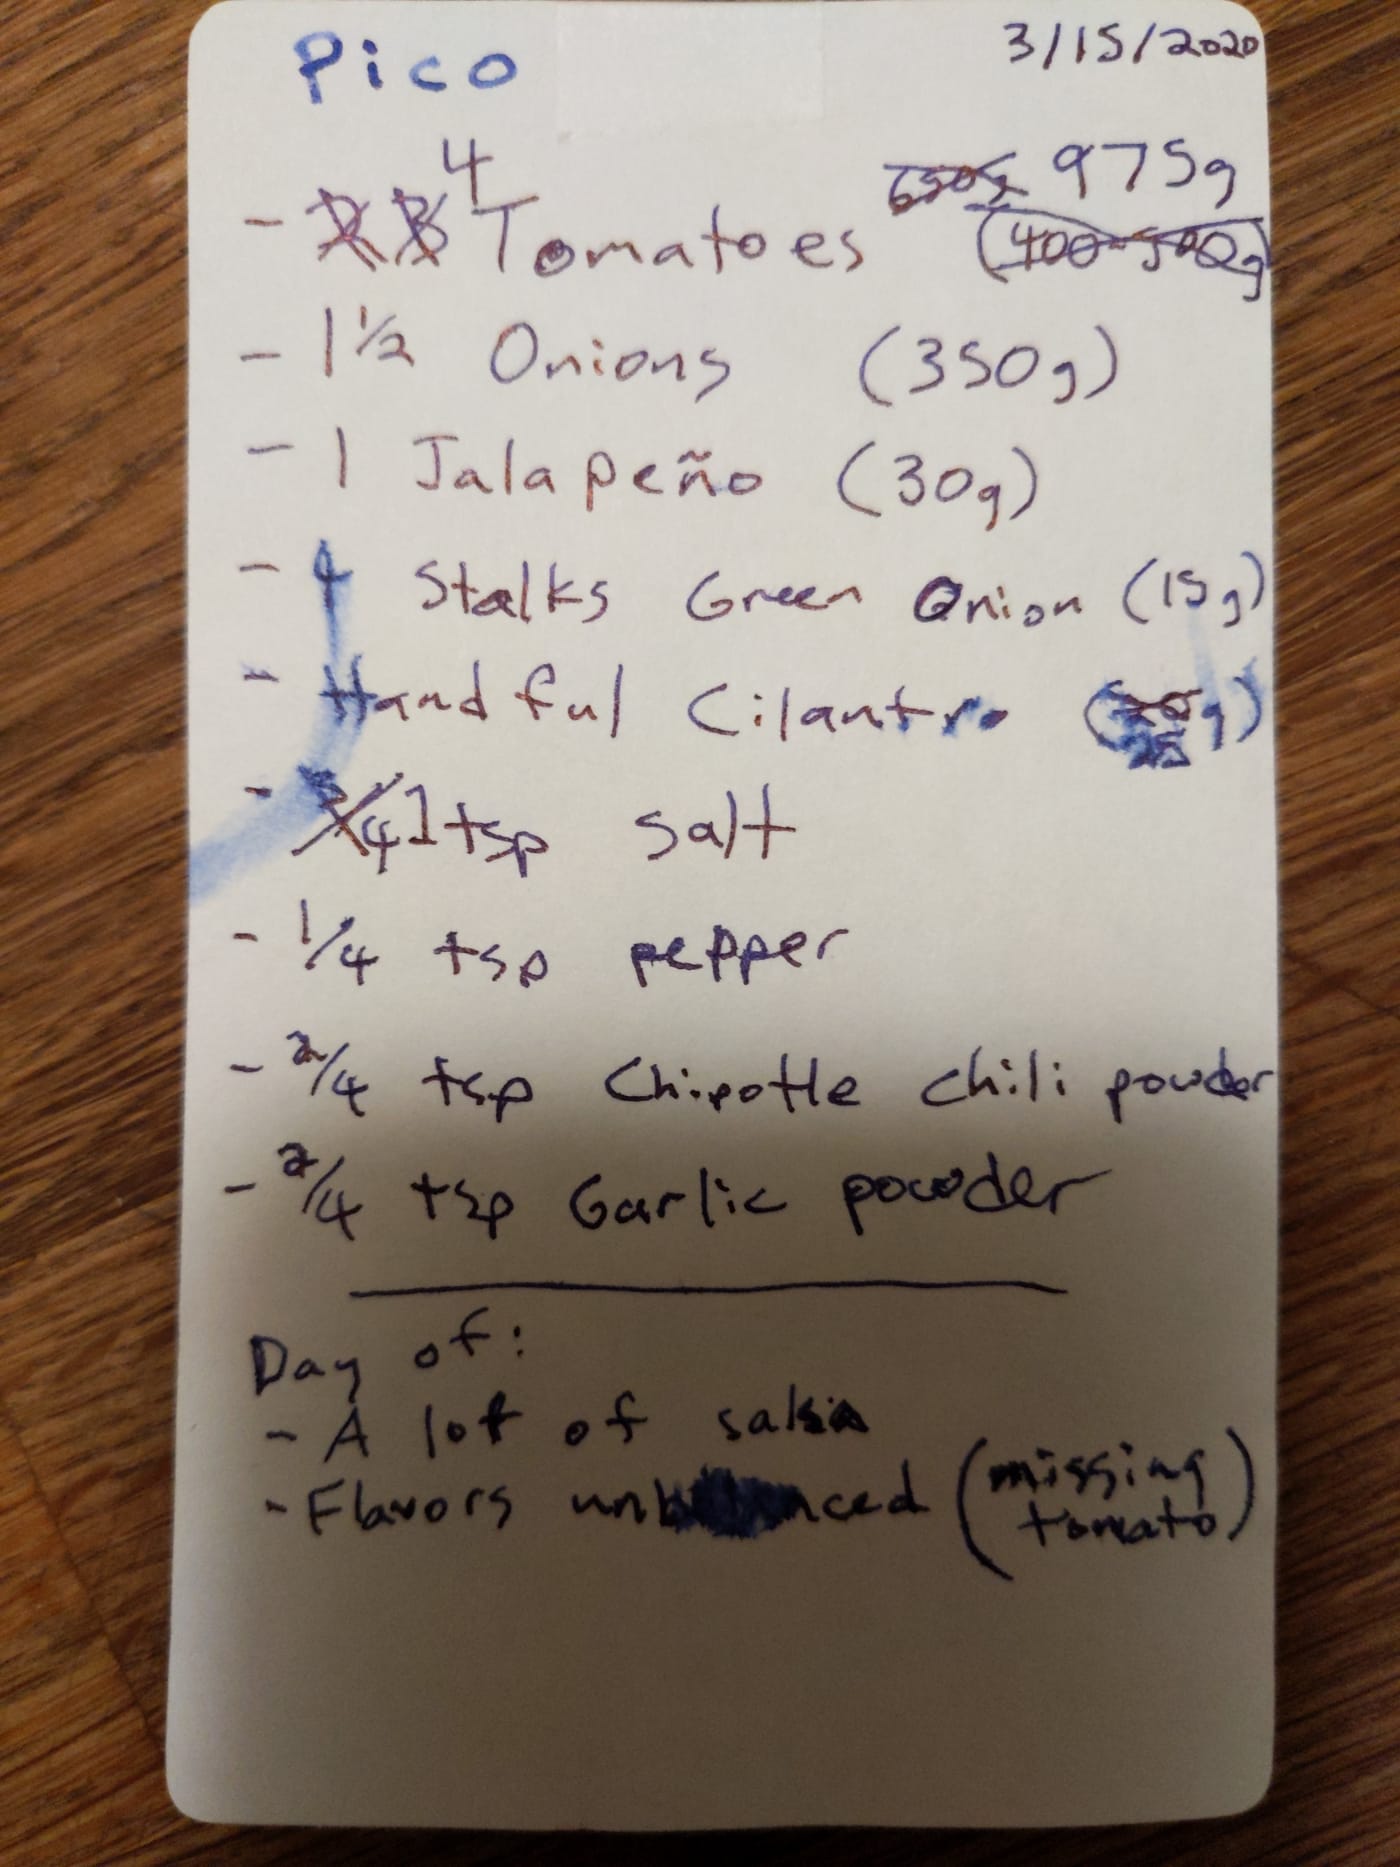 Pico 3/15/2020
4 650g 975g
- 2 3 Tomatoes (400-500g)
- 1 1/2 Onions (350g)
- 1 Jalapeño (30g)
- 4 Stalks Green Onion (15g)
- Handful Cilantro (20g)
25
- 3/4 1 tsp salt
- 1/4 tsp pepper
- 2/4 tsp Chipotle Chili powder
- 2/4 tsp Garlic powder
Day of:
- A lot of salsa
- Flavors (missing
tomato)